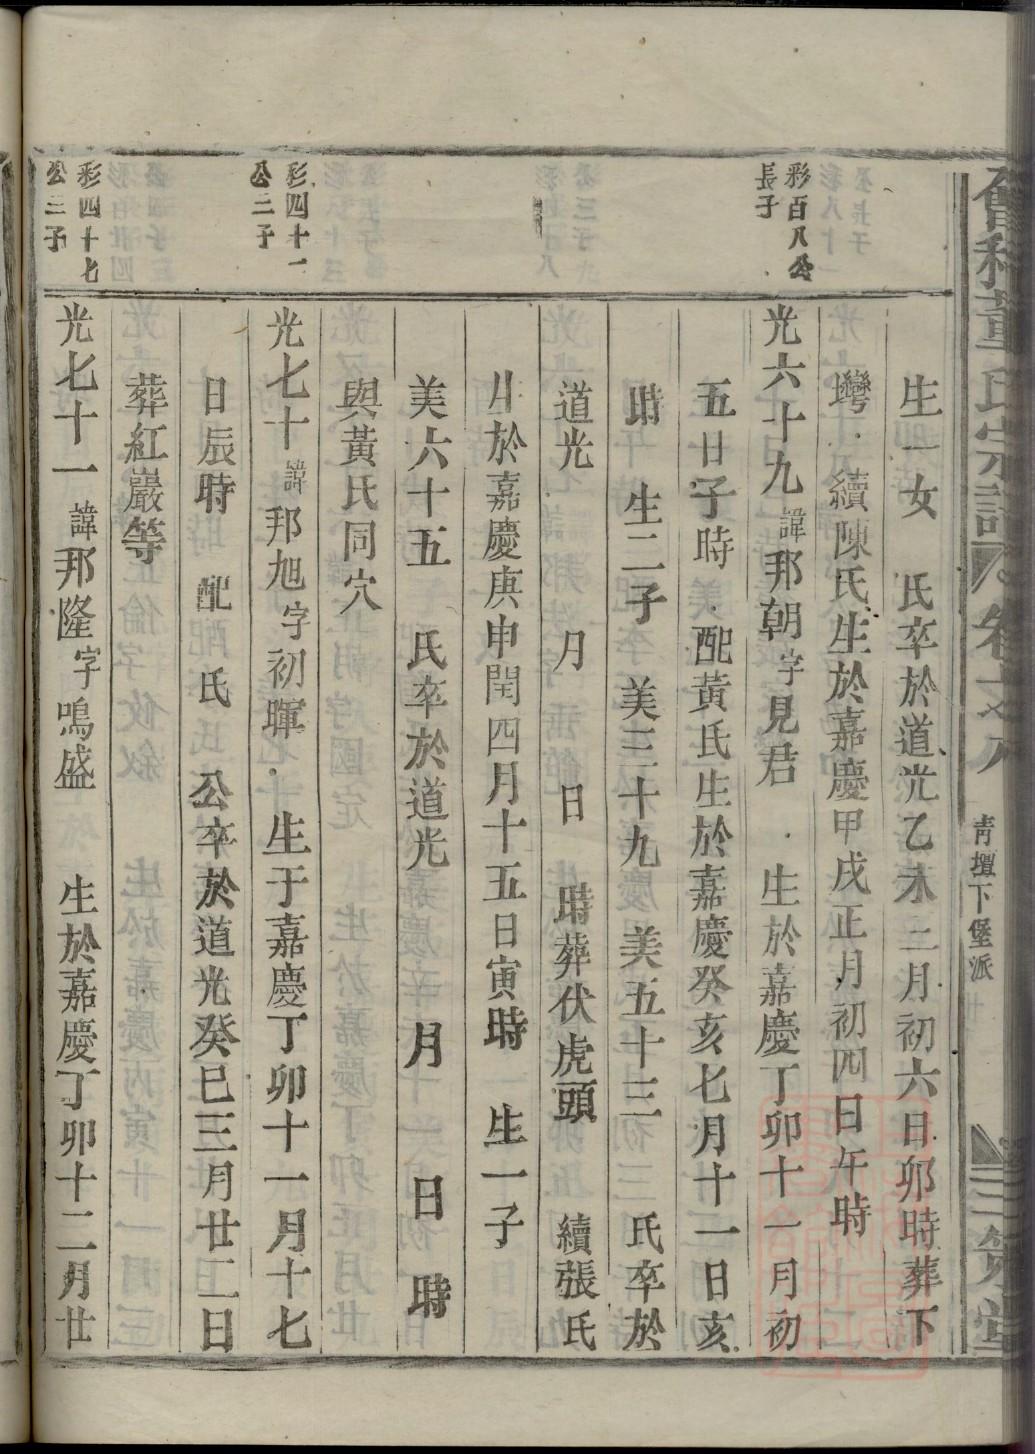 董氏宗譜 卷之八 青壇下堡派 三策堂
生一女 氏卒於道光乙未三月初六日卯時葬下
灣 續陳氏生於嘉慶甲戌正月初四日午時
彩百八公
長子
光六十九諱邦朝字見君 生於嘉慶丁卯十一月初
五日子時 配黃氏生於嘉慶癸亥七月十一日亥
時 生二子 美三十九 美五十三 氏卒於
道光 月 日 時葬伏虎頭 續張氏
生於嘉慶庚申閏四月十五日寅時 生一子
美六十五 氏卒於道光 月 日 時
與黃氏同穴
彩四十一
公二子
光七十諱邦旭字初暉 生于嘉慶丁卯十一月十七
日辰時 配 氏 公卒於道光癸巳三月廿二日
葬紅巖等
彩四十七
公三子
光七十一諱邦隆字鳴盛 生於嘉慶丁卯十二月廿